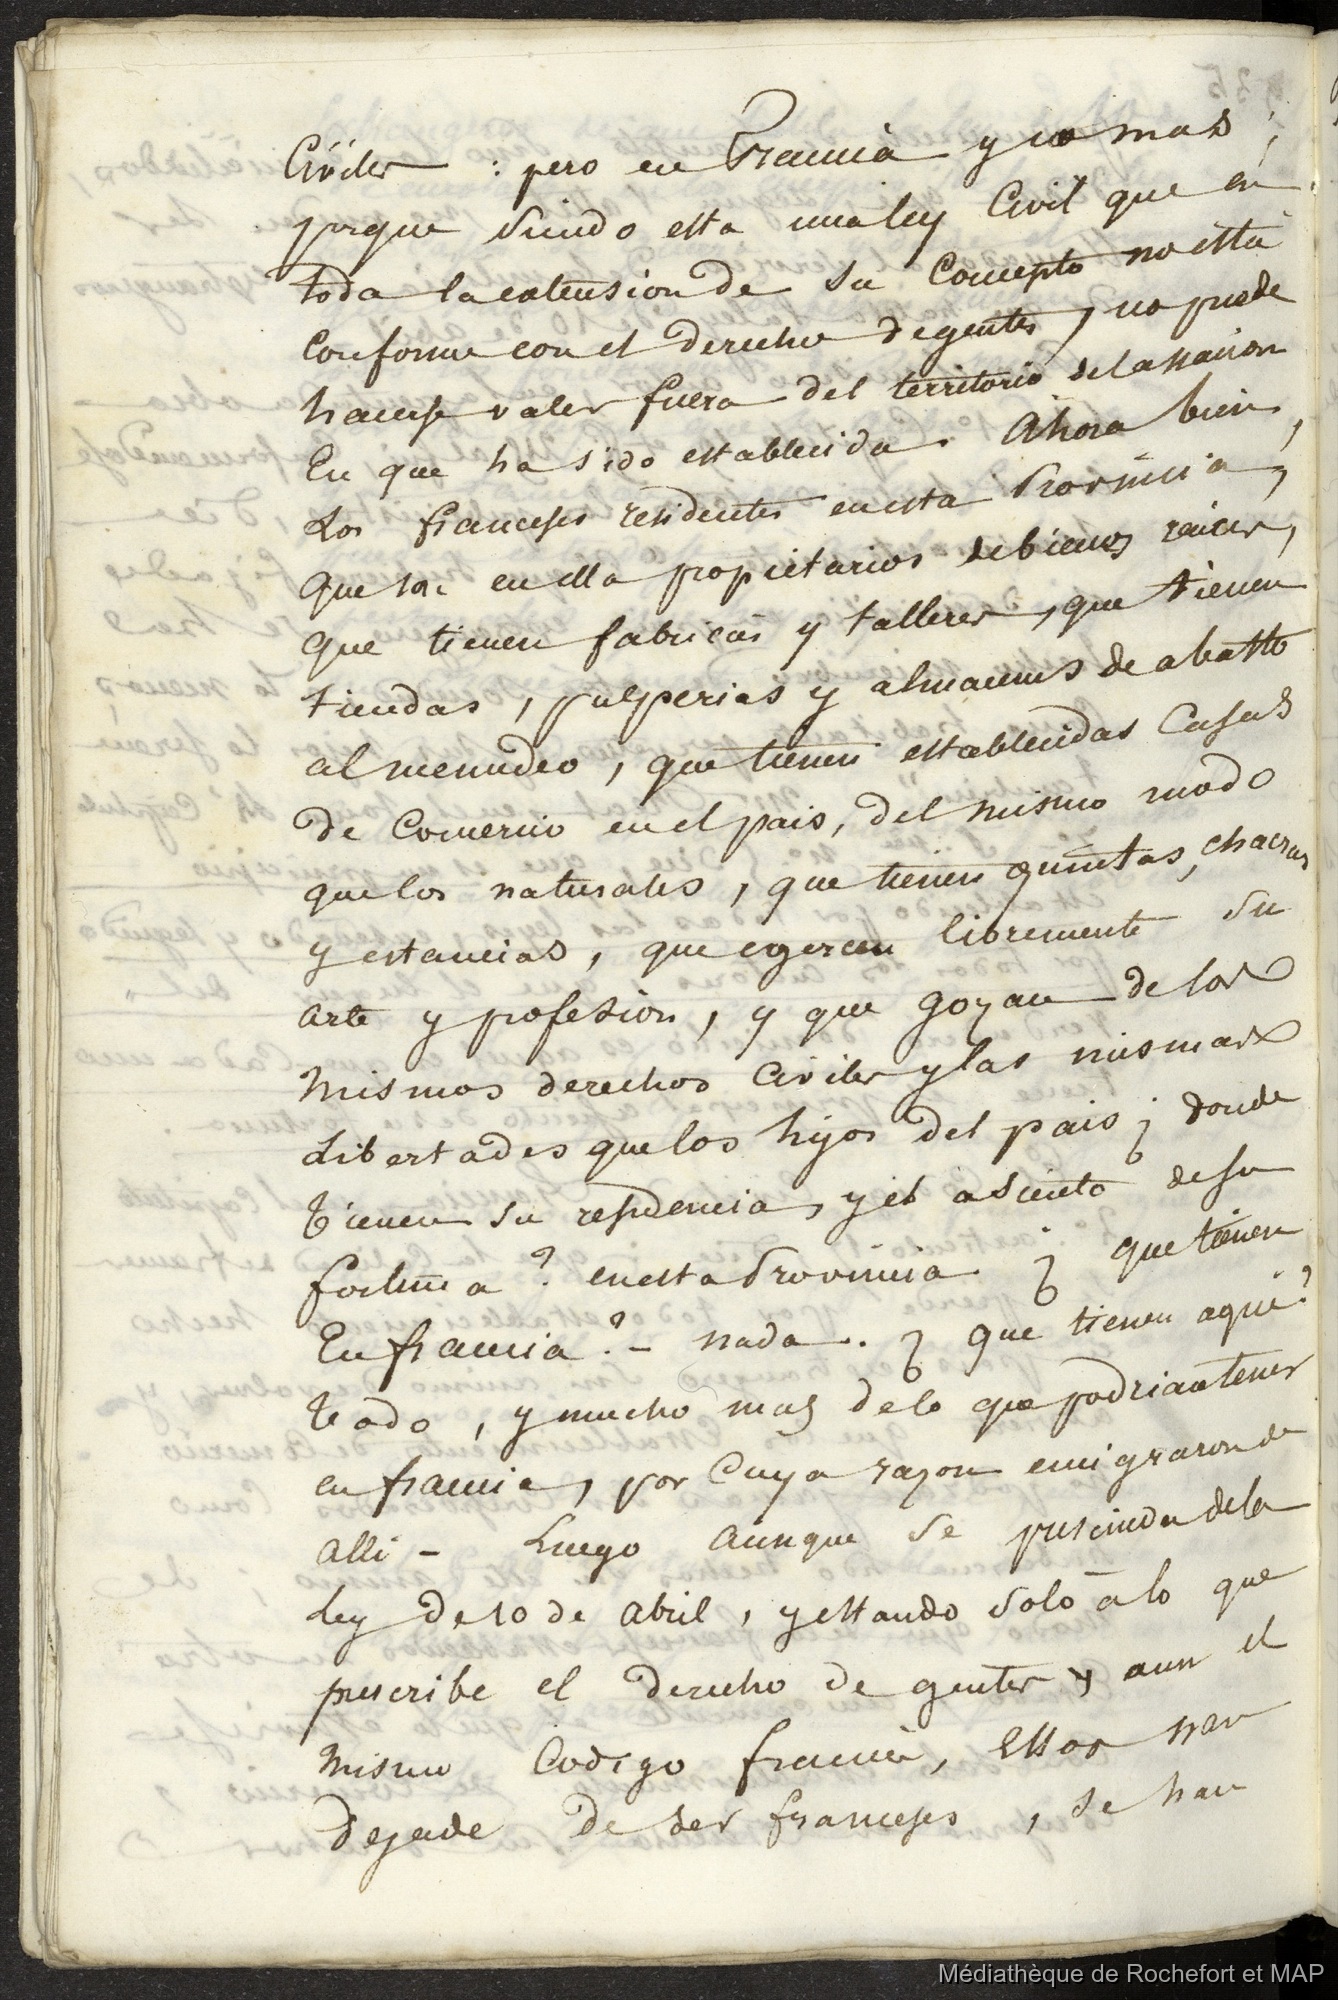 Civiles : pero en Francia y no mas ;
porque siendo esta una ley Civil que en
toda la extension de su Concepto no està
Conforme con el derecho de gentes, no puede
hacerse valer fuera del territorio de la Nacion
En que ha sido establecida. Ahora bien,
Los franceses residentes en esta Provincia,
que son en ella propietarios de bienes raices,
que tienen fabricas y talleres, que tienen
tiendas, pulperias y almacenes de abasto
al menudeo, que tienen establecidas Casas
de Comercio en el pais, del mismo modo
que los naturales, que tienen quintas, chacras
y estancias, que egercen libremente su
arte y profesion, y que gozan de los
mismos derechos Civiles y las mismas
Libertades que los hijos del pais ¿ donde
tienen su residencia, y el asiento de su
fortuna ? en esta Provincia ¿ que tienen
En francia ? – nada . ¿ que tienen aqui ?
todo, y mucho mas de lo que podrian tener
en francia, por Cuya razon emigraron de
alli – Luego aunque se prescinda de la
Ley de 10 de abril, y estando solo à lo que
prescribe el derecho de gentes y aun el
mismo Codigo francés, Ellos han
dejado de ser franceses, se han
Médiathèque de Rochefort et MAP